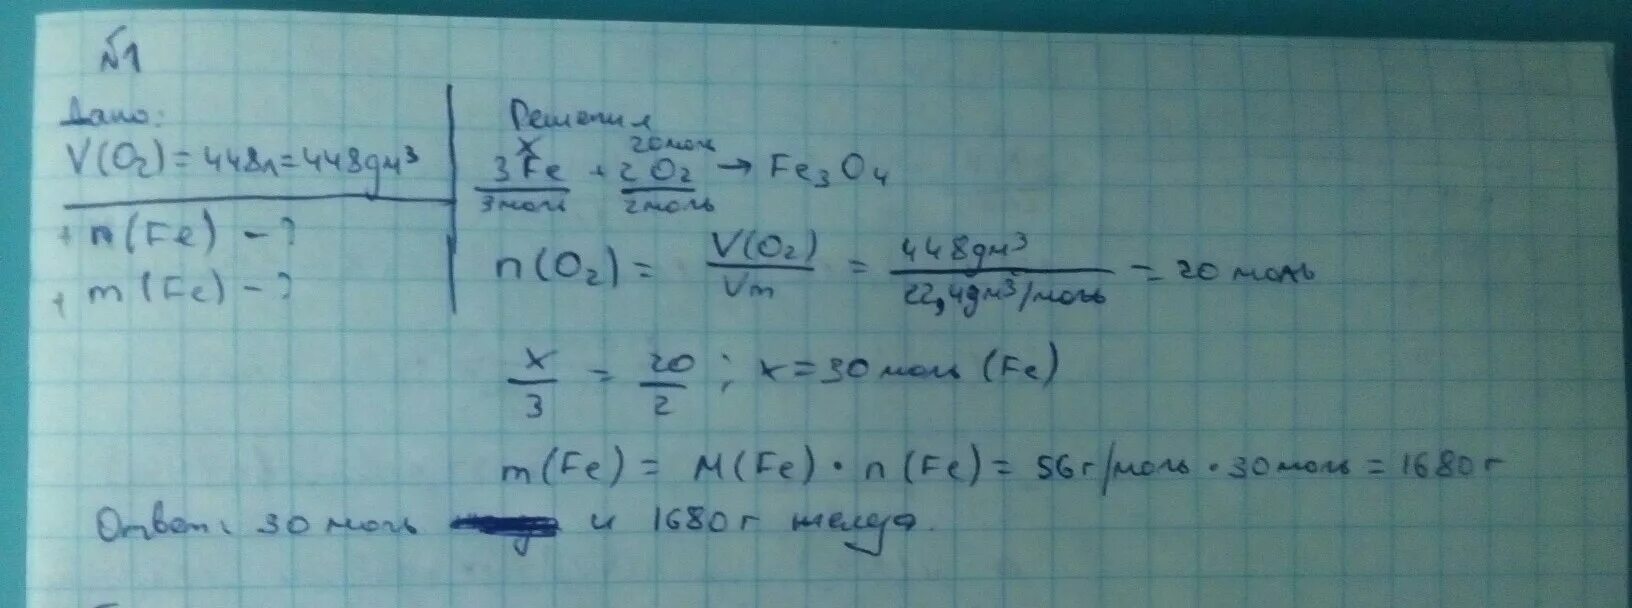 №1
Дано:
V(O₂) = 448л = 448дм³
n(Fe) - ?
m(Fe) - ?
Решения
x 20моль
3Fe + 2O₂ → Fe₃O₄
3моль 2моль
n(O₂) = V(O₂)/Vm = 448дм³/22,4дм³/моль = 20 моль
x/3 = 20/2 ; x = 30 моль (Fe)
m(Fe) = M(Fe) · n(Fe) = 56г/моль · 30моль = 1680г
Ответ: 30 моль и 1680г